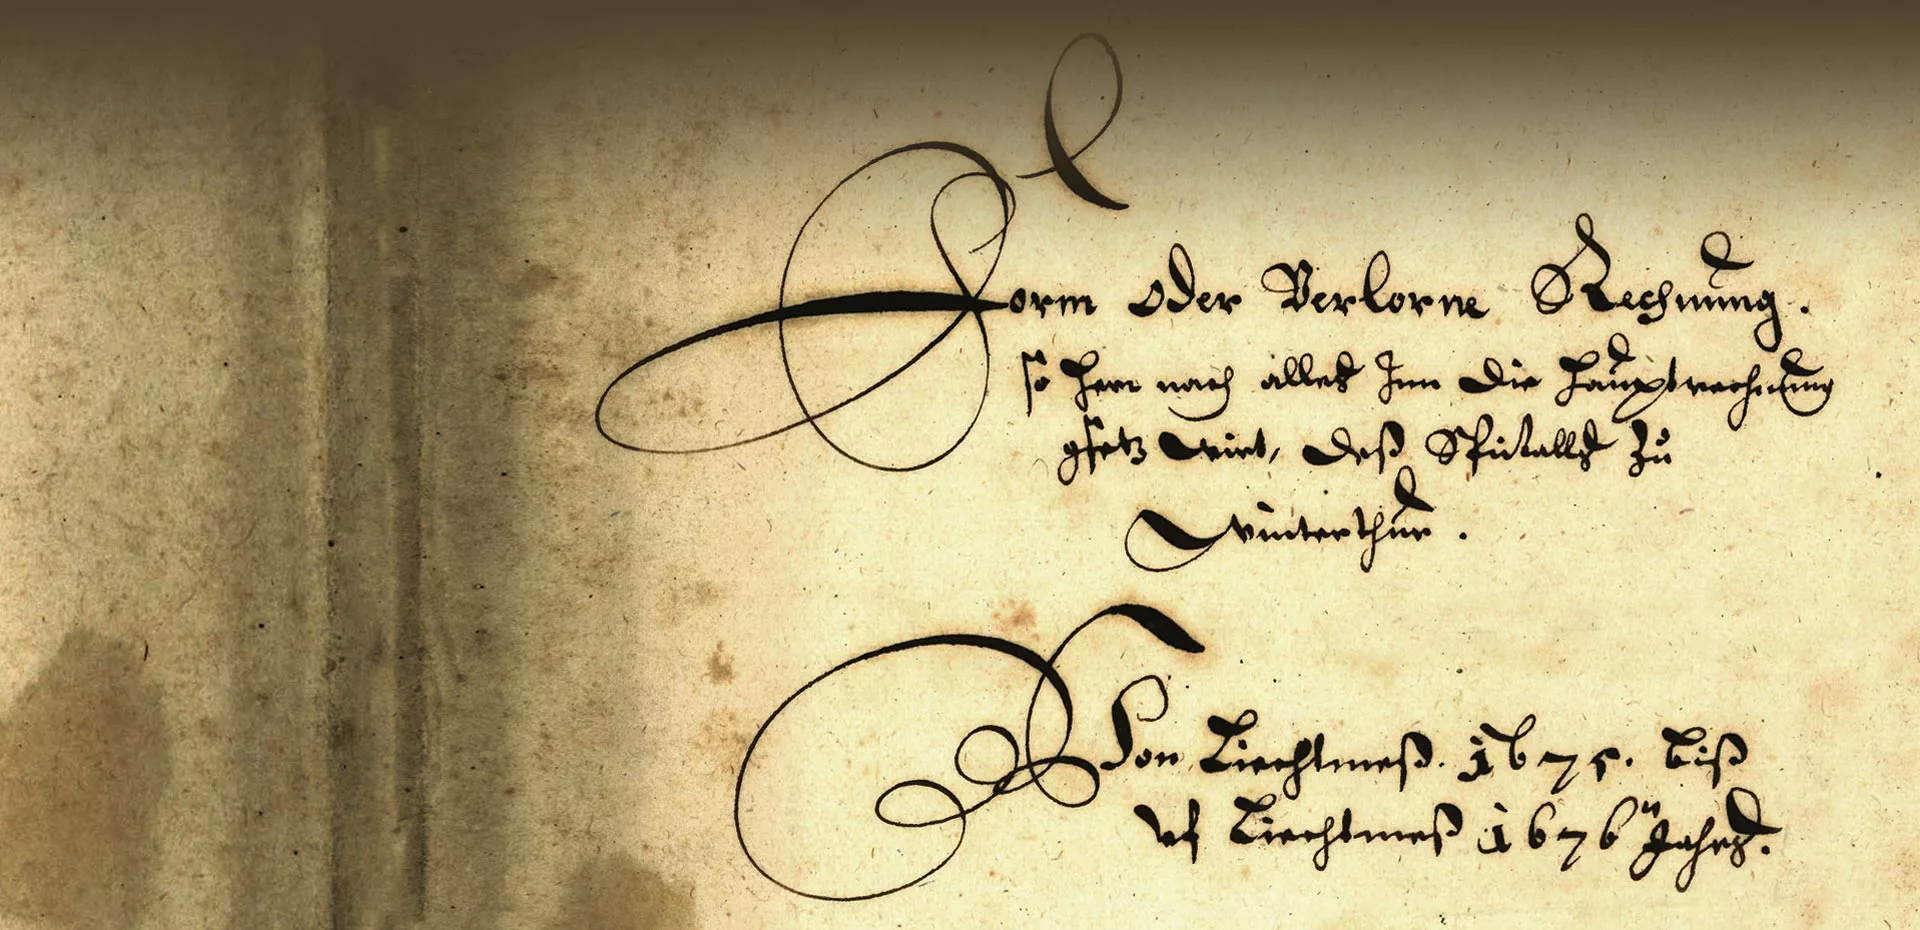 Form oder Verlorne Rechnung.
so hernach alles Inn die Hauptrechnung
gsetz wirt, deß Spitalls zů
Winterthur.
Von Liechtmeß. 1675. biß
vf Liechtmeß 1676 Jahrs.